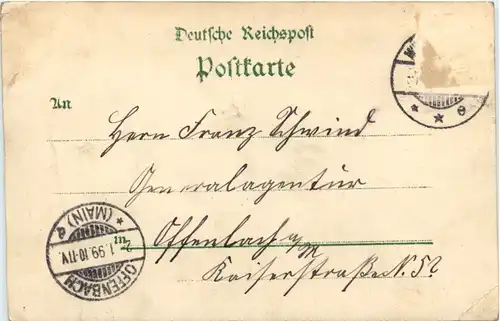 Deutsche Reichspost
Postkarte
An
Herrn Franz Schwind
Generalagentur
in Offenbach a/M
Kaiserstraße N. 52
OFFENBACH
* (MAIN) d
1.99.10-11V.
* * e